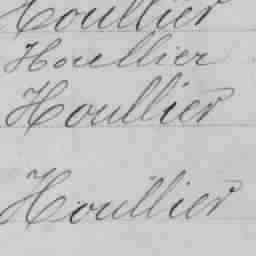 Houllier
Houllier
Houllier
Houllier